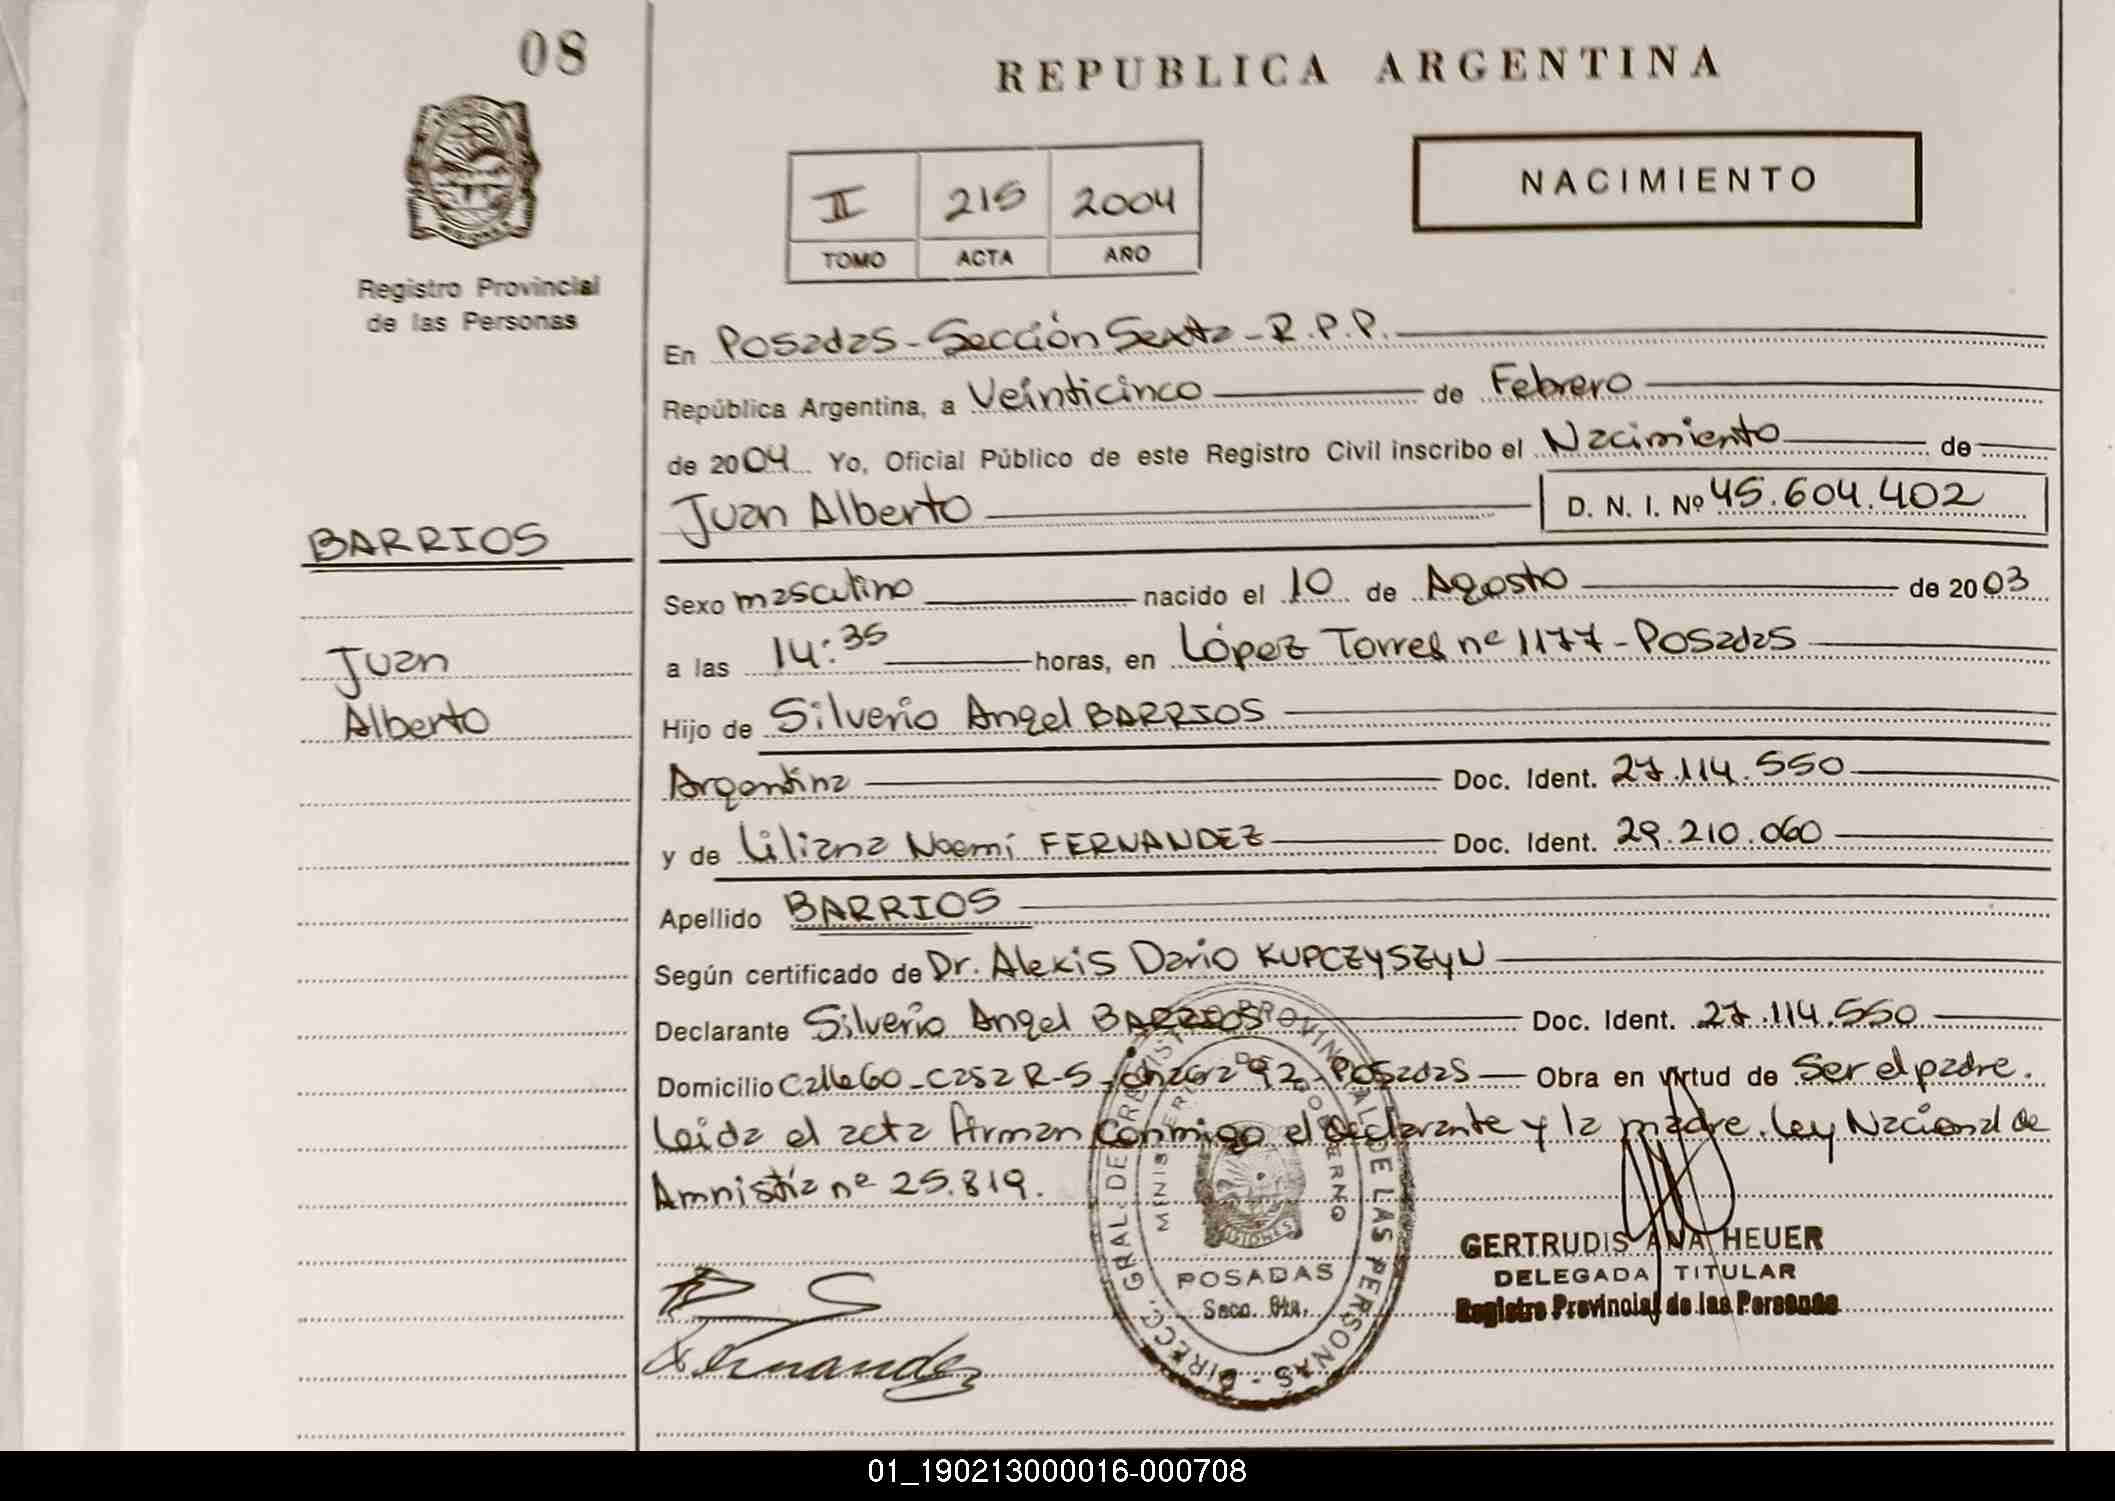 08
REPUBLICA ARGENTINA
NACIMIENTO
II 215 2004
TOMO ACTA AÑO
Registro Provincial
de las Personas
En Posadas - Sección Sexta - R.P.P.
República Argentina, a Veinticinco de Febrero
de 2004 Yo, Oficial Público de este Registro Civil inscribo el Nacimiento de
Juan Alberto D. N. I. Nº 45.604.402
BARRIOS
Juan
Alberto
Sexo masculino nacido el 10 de Agosto de 2003
a las 14:35 horas, en López Torres nº 1177 - Posadas
Hijo de Silverio Angel BARRIOS
Argentina Doc. Ident. 27.114.550
y de Liliana Noemí FERNANDEZ Doc. Ident. 29.210.060
Apellido BARRIOS
Según certificado de Dr. Alexis Dario KUPCZYSZYN
Declarante Silverio Angel BARRIOS Doc. Ident. 27.114.550
Domicilio Calle 60 - casa R-5 - chacra 92 - Posadas Obra en virtud de Ser el padre.
Leida el acta firman conmigo el declarante y la madre. Ley Nacional de
Amnistía nº 25.819.
DIRECC. GRAL. DE REGISTRO PROVINCIAL DE LAS PERSONAS
MINISTERIO DE GOBIERNO
MISIONES
POSADAS
Secc. 6ta.
GERTRUDIS ANA HEUER
DELEGADA TITULAR
Registro Provincial de las Personas
Fernandez
01_190213000016-000708